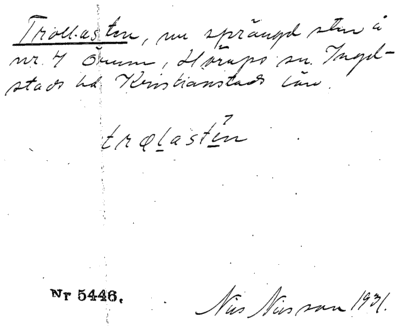 Trollasten, nu sprängd sten å
nr. 7 Örum, Hörups sn. Ingel-
stads hd Kristianstads län.
trolastin
Nr 5446.
Nils Nilsson 1931.